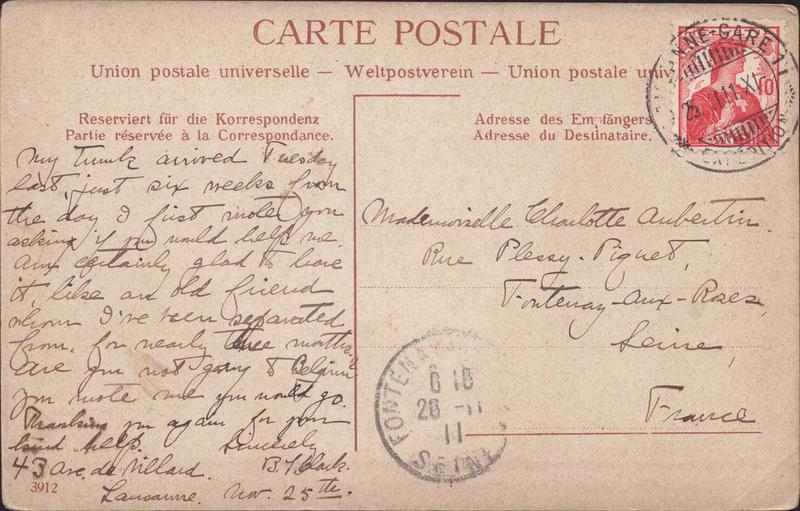 CARTE POSTALE
Union postale universelle — Weltpostverein — Union postale uni
Reserviert für die Korrespondenz
Partie réservée à la Correspondance.
Adresse des Empfängers
Adresse du Destinataire.
My trunk arrived Tuesday
last, just six weeks from
the day I first wrote you
asking if you would help me.
Am certainly glad to have
it, like an old friend
whom I've been separated
from, for nearly three months.
Are you not going to Belgium
you wrote me you would go.
Thanking you again for your
kind help. Sincerely
43 Ave. de Villard. B. T. Clark.
Lausanne. Nov. 25th.
3912
Mademoiselle Charlotte Aubertin.
Rue Plessy-Piguet,
Fontenay-aux-Roses,
Seine,
France
NNE-GARE
25 11 XI
EXPEDITION
10
FONTENAY
6 18
26 -11
11
SEINE